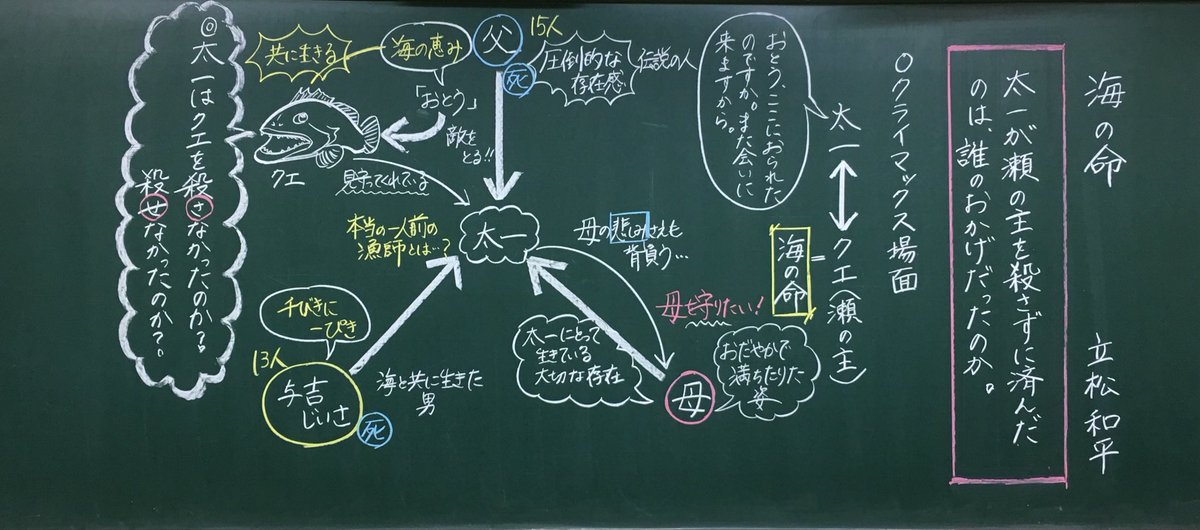 海の命
立松和平
太一が瀬の主を殺さずに済んだ
のは、誰のおかげだったのか。
○クライマックス場面
太一
クエ(瀬の主)
=
海の命
おとう、ここにおられた
のですか。また会いに
来ますから。
15人
父
死
圧倒的な
存在感
伝説の人
海の恵み
共に生きる
「おとう」
敵を
とる!!
クエ
見守ってくれている
太一
本当の一人前の
漁師とは…?
母の悲しみさえも
背負う…
母を守りたい!
母
おだやかで
満ちたりた
姿
太一にとって
生きている
大切な存在
千びきに
一ぴき
13人
与吉
じいさ
死
海と共に生きた
男
◎太一はクエを殺さなかったのか?
殺せなかったのか?。